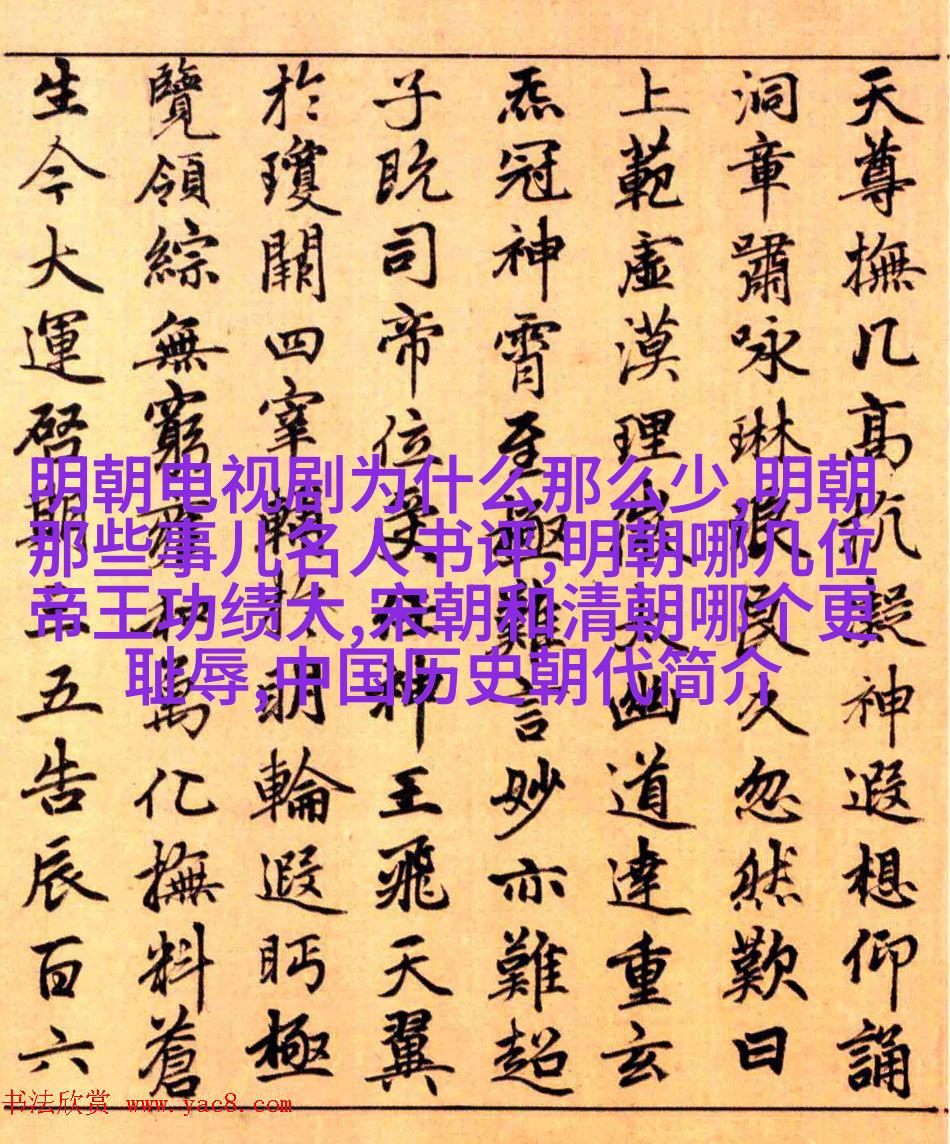 天尊撫几高抗凝神遐想仰誦
洞章嘯咏琳琅良久忽然歎曰
上範虛漠理微太幽道達重玄
炁冠神霄至極難言妙亦難超
子既司帝位神王飛天翼
於瓊闕四宰轄於明輪遐眄極
覽領綜無窮萬化撫料蒼
生今大運啓期五告辰百六
明朝电视剧为什么那么少,明朝
那些事儿名人书评,明朝哪几位
帝王功绩大,宋朝和清朝哪个更
耻辱,中国历史朝代简介
书法欣赏 www.yac8.com